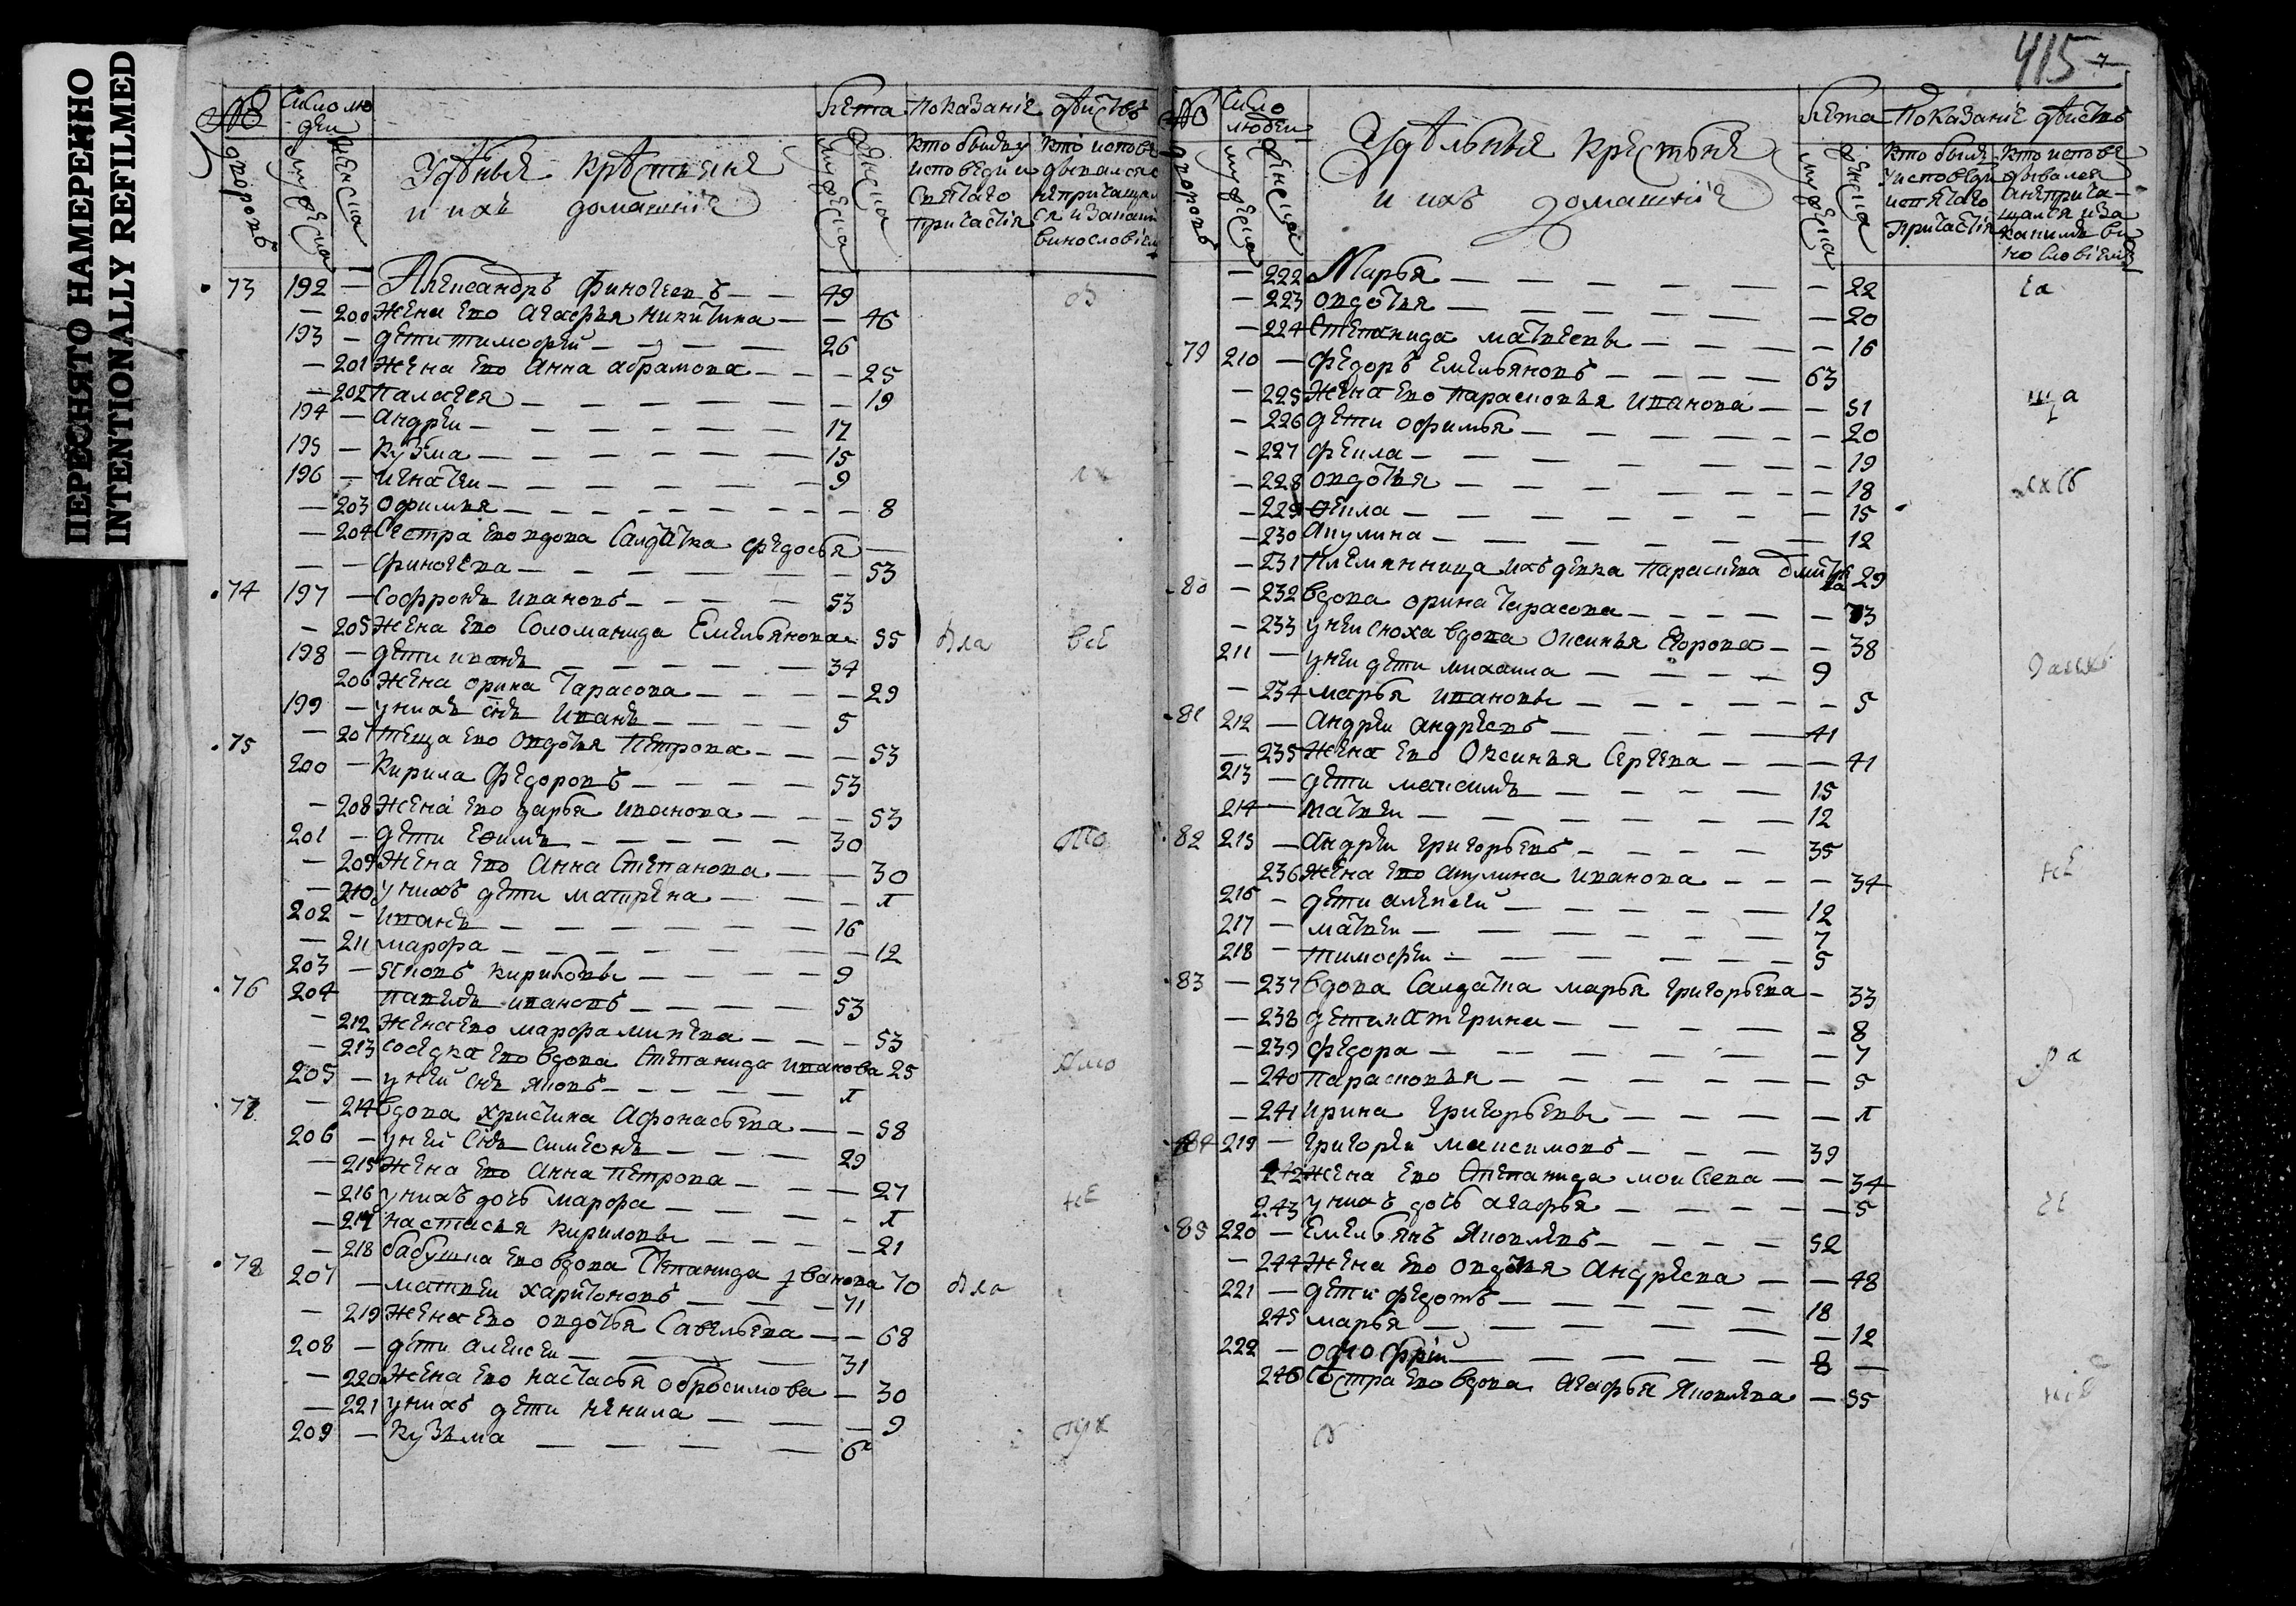 ПЕРЕСНЯТО НАМЕРЕННО
INTENTIONALLY REFILMED
№ Число людеи Лета Показаніе действъ
дворовъ мужеска женска Уделныя крестьяня мужеска женска Кто были у Кто испове
и ихъ домашнія исповеди и дывался а
святаго не причащал
причастія ся и за каким
винословіемъ
73 192 — Александръ Финогеевъ — — 49
— 200 жена ево агафья никитина — — 46
193 — дети тимофеи — — — 26
— 201 жена ево анна абрамова — — — 25
— 202 палагея — — — — — — 19
194 — андреи — — — — — — 17
195 — кузма — — — — — — 15
196 — игнатеи — — — — — — 9
— 203 офимья — — — — — — — 8
— 204 сестра ево вдова салдатка федосья —
— — финогеева — — — — — — 53
74 197 — софронъ ивановъ — — — — 53
— 205 жена ево соломанида емельянова 55 Бла все
198 — дети иванъ — — — — — 34
206 жена орина тарасова — — — — 29
199 — у нихъ снъ иванъ — — — — 5
— 207 теща ево овдотья петрова — — — 53
75 200 — кирила федоровъ — — — — 53
— 208 жена ево дарья иванова — — — 53
201 — дети ефимъ — — — — — 30 то
— 209 жена ево анна степанова — — 30
— 210 у нихъ дети матрена — — — 1
202 — иванъ — — — — — — 16
— 211 марфа — — — — — — — 12
203 — яковъ кириловы — — — — 9
76 204 павелъ ивановъ — — — — 53
— 212 жена ево марфа минеева — — — — 53
— 213 соседка ево вдова степанида иванова 25
205 — у ней снъ яковъ — — — — 1
77 — 214 вдова христина афонасьева — — 58
206 — у ней снъ симионъ — — — 29
— 215 жена ево анна петрова — — — 27
— 216 у нихъ дочь марфа — — — — 1 не
— 217 настасья кириловы — — — — 21
— 218 бабушка ево вдова степанида ивanova 70
78 207 — матвеи харитоновъ — — — 71 Бла
— 219 жена ево овдотья савельева — — 68
208 — дети алексеи — — — — 31
— 220 жена ево настасья обросимова — 30
— 221 у нихъ дети ненила — — — — 9
209 — кузьма — — — — — 6
415
№ Число людеи Лета Показаніе действъ
дворовъ мужеска женска Удельныя крестьяня мужеска женска Кто были Кто испове
и ихъ домашніе у исповеди дывался
и святаго а не прича—
причастія щался и за
какимъ ви
нословіемъ
— 222 Марья — — — — — — 22
— 223 овдотья — — — — — — 20
— 224 степанида матвеевы — — — — 16
79 210 — федоръ емельяновъ — — — — 63
— 225 жена ево парасковья иванова — — 51
— 226 дети офимья — — — — — — 20
— 227 фекла — — — — — — — 19
— 228 овдотья — — — — — — — 18
— 229 фекла — — — — — — — 15
— 230 акулина — — — — — — — 12
— 231 племянница ихъ девка парасковя дмитрева 29
80 — 232 вдова орина тарасова — — — — — 73
— 233 у неи сноха вдова оксинья егорова — — 38
211 — у неи дети михаила — — — — 9
— 234 марья ивановы — — — — — — 5
81 212 — андреи андреевъ — — — — 41
— 235 жена ево оксинья сергеева — — — 41
213 — дети максимъ — — — — 15
214 — матвеи — — — — — — 12
82 215 — андреи григорьевъ — — — — 35
236 жена ево акулина иванова — — — 34 не
216 — дети алексеи — — — — — 12
217 — матвеи — — — — — — 7
218 — тимофеи — — — — — — 5
83 — 237 вдова салдатка марья григорьева — 33
— 238 дети катерина — — — — — 8
— 239 федора — — — — — — — 7
— 240 парасковья — — — — — — 5
— 241 ирина григорьевы — — — — — 1
84 219 — григореи максимовъ — — — 39
242 жена ево степанида моисеева — — 34
243 у нихъ дочь агафья — — — — — 5
85 220 — емельянъ яковлевъ — — — — 52
— 244 жена ево овдотья андреева — — 48
221 — дети федотъ — — — — — 18
245 марья — — — — — — — 12
222 — онофріи — — — — — 8 —
246 сестра ево вдова агафья яковлева — 55